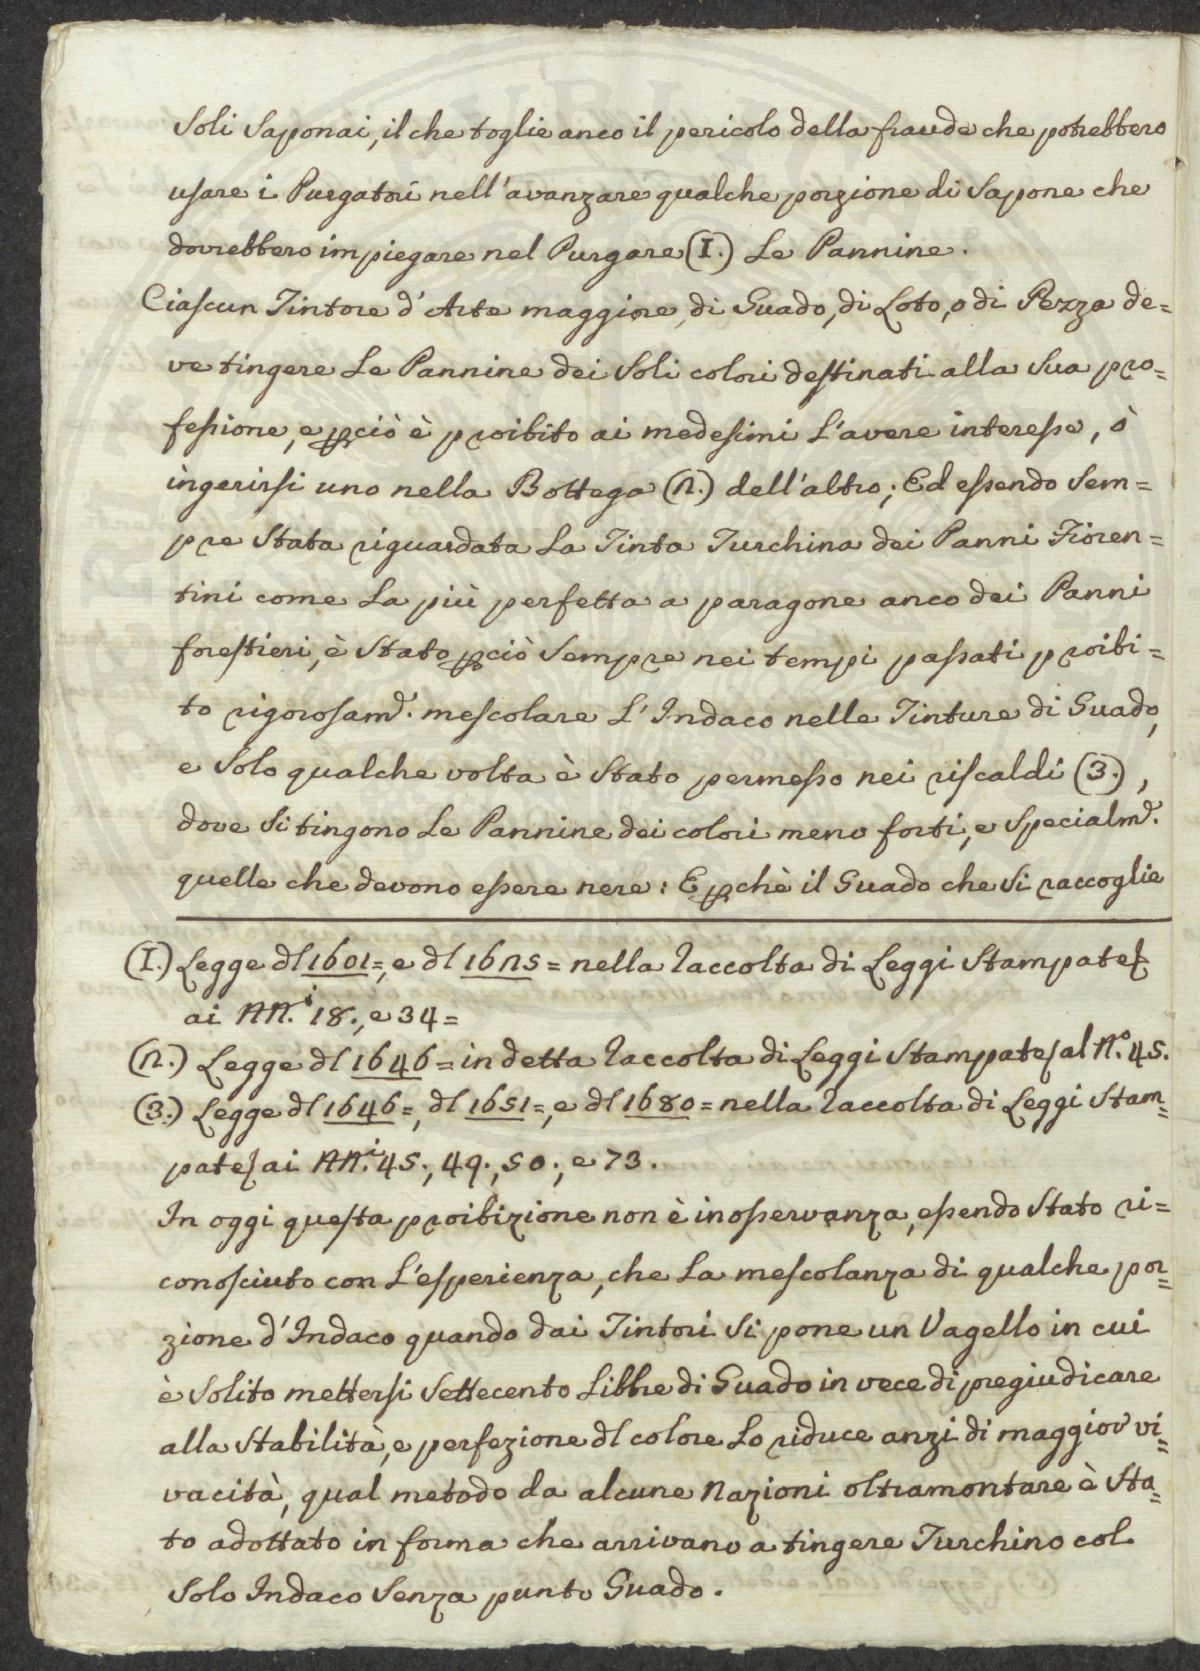 Soli Saponai, il che toglie anco il pericolo della fraude che potrebbero
usare i Purgatori nell'avanzare qualche porzione di Sapone che
dovrebbero impiegare nel Purgare (I.) Le Pannine.
Ciascun Tintore d'Arte maggiore, di Guado, di Loto, o di Pezza de=
ve tingere Le Pannine dei Soli colori destinati alla Sua pro=
fessione, e pciò è proibito ai medesimi L'avere interesse, ò
ingerirsi uno nella Bottega (2.) dell'altro; Ed essendo Sem=
pre Stata riguardata La Tinta Turchina dei Panni Fioren=
tini come La più perfetta a paragone anco dei Panni
forestieri, è Stato pciò Sempre nei tempi passati proibi=
to rigorosamte. mescolare L'Indaco nelle Tinture di Guado,
e Solo qualche volta è Stato permesso nei riscaldi (3.),
dove Si tingono Le Pannine dei colori meno forti, e Specialmte.
quelle che devono essere nere: E pchè il Guado che Si raccoglie
(I.) Legge dl 1601=, e dl 1625= nella Raccolta di Leggi Stampate
ai NN.i 18., e 34=
(2.) Legge dl 1646= in detta Raccolta di Leggi Stampate al N.o 45.
(3.) Legge dl 1646=, dl 1651=, e dl 1680= nella Raccolta di Leggi Stam=
pate ai NN.i 45., 49., 50., e 73.
In oggi questa proibizione non è in osservanza, essendo Stato ri=
conosciuto con L'esperienza, che La mescolanza di qualche por=
zione d'Indaco quando dai Tintori Si pone un Vagello in cui
è Solito mettersi Settecento Libbre di Guado in vece di pregiudicare
alla Stabilità, e perfezione dl colore Lo riduce anzi di maggior vi=
vacità, qual metodo da alcune Nazioni oltramontane è Sta=
to adottato in forma che arrivano a tingere Turchino col
Solo Indaco Senza punto Guado.